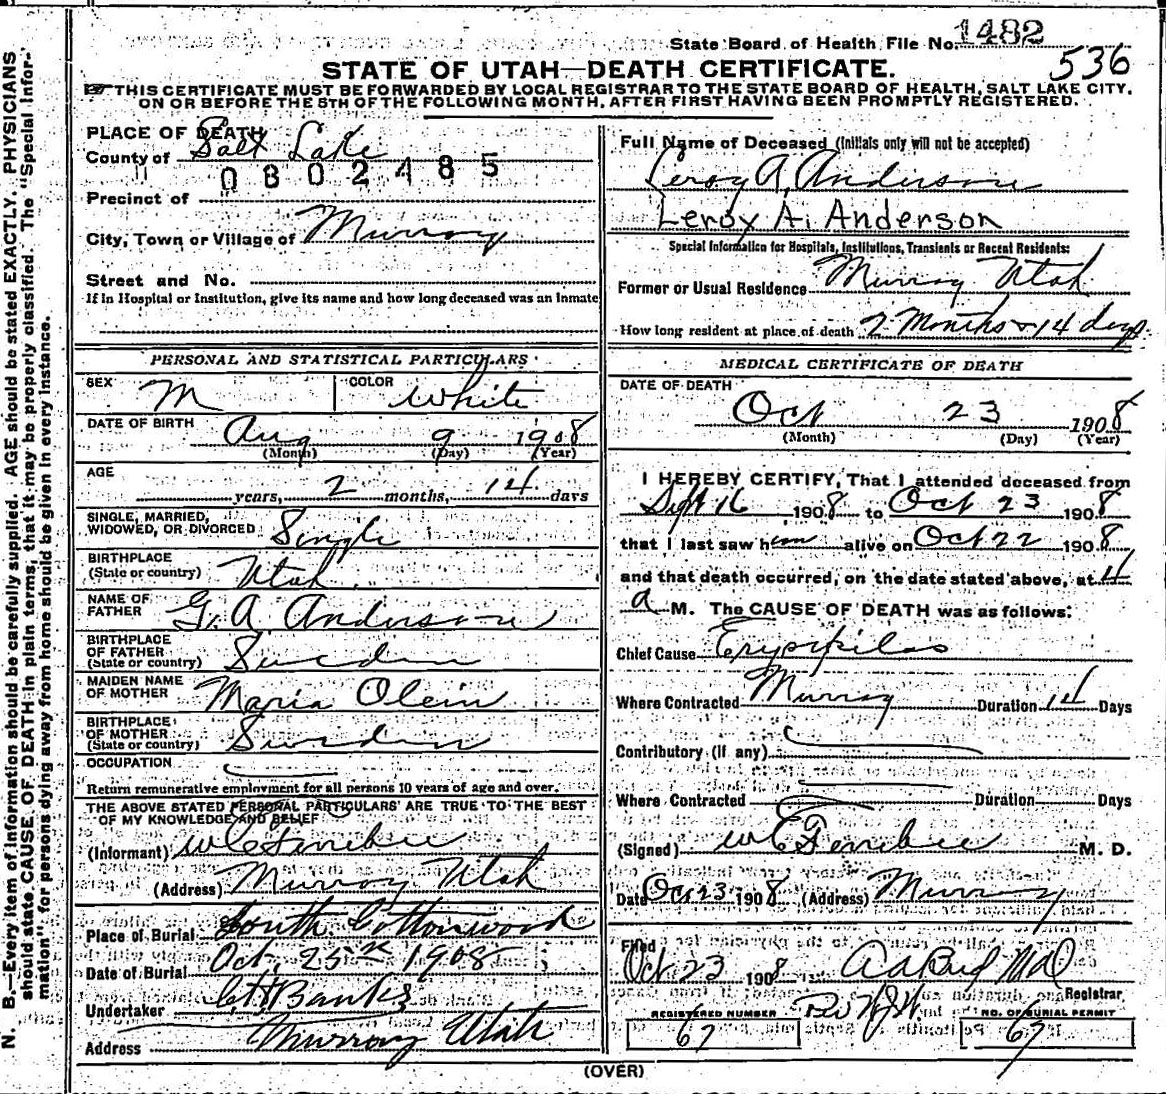 State Board of Health File No. 1482
536
STATE OF UTAH—DEATH CERTIFICATE.
THIS CERTIFICATE MUST BE FORWARDED BY LOCAL REGISTRAR TO THE STATE BOARD OF HEALTH, SALT LAKE CITY,
ON OR BEFORE THE 5TH OF THE FOLLOWING MONTH, AFTER FIRST HAVING BEEN PROMPTLY REGISTERED.
N. B.—Every item of information should be carefully supplied. AGE should be stated EXACTLY. PHYSICIANS
should state CAUSE OF DEATH in plain terms, that it may be properly classified. The "Special Infor-
mation" for persons dying away from home should be given in every instance.
PLACE OF DEATH
County of Salt Lake
0802485
Precinct of
City, Town or Village of Murray
Street and No.
If in Hospital or Institution, give its name and how long deceased was an inmate
PERSONAL AND STATISTICAL PARTICULARS
SEX M COLOR White
DATE OF BIRTH Aug 9 1908
(Month) (Day) (Year)
AGE years, 2 months, 14 days
SINGLE, MARRIED,
WIDOWED, OR DIVORCED Single
BIRTHPLACE
(State or country) Utah
NAME OF
FATHER G. A. Anderson
BIRTHPLACE
OF FATHER
(State or country) Sweden
MAIDEN NAME
OF MOTHER Maria Olein
BIRTHPLACE
OF MOTHER
(State or country) Sweden
OCCUPATION
Return remunerative employment for all persons 10 years of age and over.
THE ABOVE STATED PERSONAL PARTICULARS ARE TRUE TO THE BEST
OF MY KNOWLEDGE AND BELIEF
(Informant) W E Ferrebee
(Address) Murray Utah
Place of Burial South Cottonwood
Date of Burial Oct. 25th 1908
Undertaker Banks
Address Murray Utah
Full Name of Deceased (Initials only will not be accepted)
Leroy A. Anderson
Leroy A. Anderson
Special Information for Hospitals, Institutions, Transients or Recent Residents:
Former or Usual Residence Murray Utah
How long resident at place of death 2 Months & 14 days
MEDICAL CERTIFICATE OF DEATH
DATE OF DEATH
Oct 23 1908
(Month) (Day) (Year)
I HEREBY CERTIFY, That I attended deceased from
Sept 16 1908 to Oct 23 1908
that I last saw him alive on Oct 22 1908
and that death occurred, on the date stated above, at 11
a M. The CAUSE OF DEATH was as follows:
Chief Cause Erysipilas
Where Contracted Murray Duration 14 Days
Contributory (if any)
Where Contracted Duration Days
(Signed) W E Ferrebee M. D.
Date Oct 23 1908 (Address) Murray
Filed
Oct 23 1908
Registrar
REGISTERED NUMBER
67
NO. OF BURIAL PERMIT
67
(OVER)